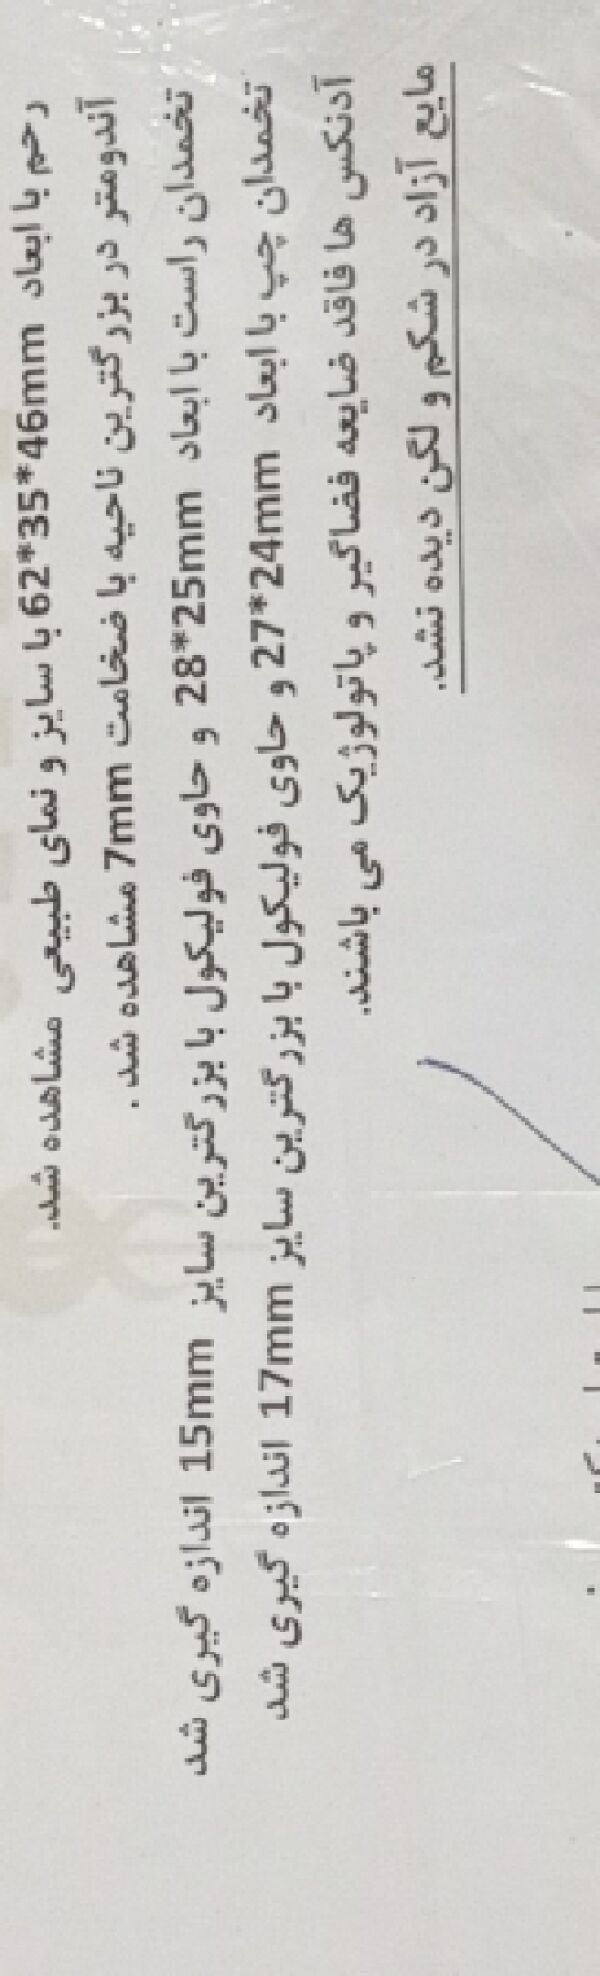 رحم با ابعاد 62*35*46mm با سایز و نمای طبیعی مشاهده شد.
آندومتر در بزرگترین ناحیه با ضخامت 7mm مشاهده شد .
تخمدان راست با ابعاد 28*25mm و حاوی فولیکول با بزرگترین سایز 15mm اندازه گیری شد
تخمدان چپ با ابعاد 27*24mm و حاوی فولیکول با بزرگترین سایز 17mm اندازه گیری شد
آدنکس ها فاقد ضایعه فضاگیر و پاتولوژیک می باشند.
مایع آزاد در شکم و لگن دیده نشد.